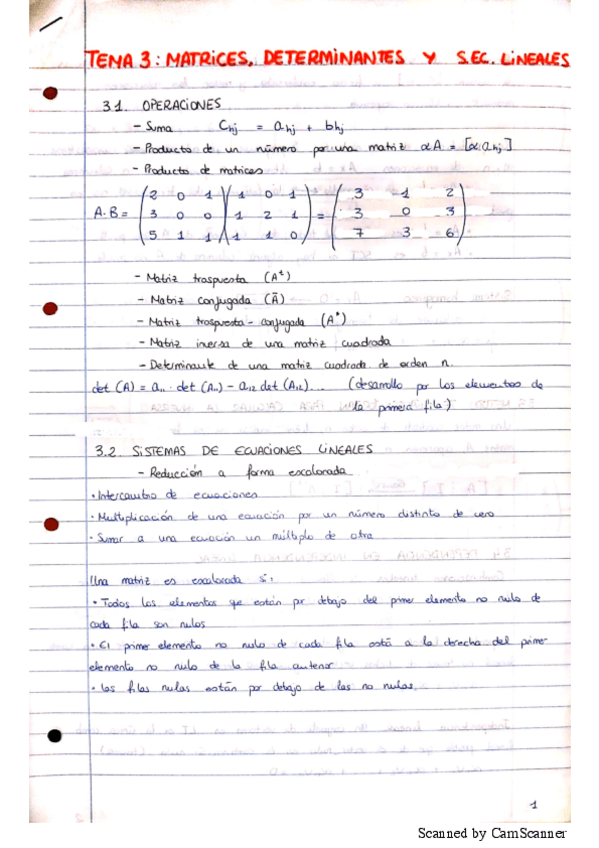 TEMA 3: MATRICES, DETERMINANTES Y S.EC. LINEALES
3.1. OPERACIONES
- Suma Chj = ahj + bhj
- Producto de un número por una matriz αA = [α ahj]
- Producto de matrices
A·B = (2 0 1 / 3 0 0 / 5 1 1)(1 0 1 / 1 2 1 / 1 1 0) = (3 -1 2 / 3 0 3 / 7 3 6)
- Matriz traspuesta (Aᵗ)
- Matriz conjugada (Ā)
- Matriz traspuesta - conjugada (A*)
- Matriz inversa de una matriz cuadrada
- Determinante de una matriz cuadrada de orden n.
det (A) = a₁₁ · det (A₁₁) - a₁₂ det (A₁₂)... (desarrollo por los elementos de
la primera fila)
3.2. SISTEMAS DE ECUACIONES LINEALES
- Reducción a forma escalonada
· Intercambio de ecuaciones
· Multiplicación de una ecuación por un número distinto de cero
· Sumar a una ecuación un múltiplo de otra
Una matriz es escalonada si:
· Todos los elementos que están por debajo del primer elemento no nulo de
cada fila son nulos
· El primer elemento no nulo de cada fila está a la derecha del primer
elemento no nulo de la fila anterior
· Las filas nulas están por debajo de las no nulas.
1
Scanned by CamScanner